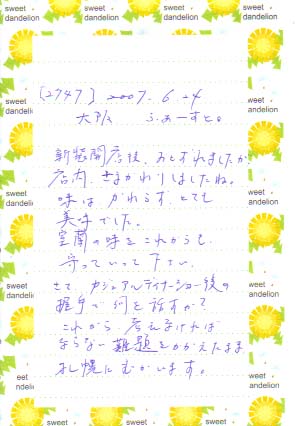 sweet dandelion
sweet dandelion
sweet dandelion
sweet dandelion
[2747] 2007.6.24
ふぁーすと。
新装開店後、おとずれましたが
店内、さまがわりしましたね。
味はかわらず、とても
美味でした。
室蘭の味をこれからも
守っていって下さい。
さて、カジュアルディナーショー後の
握手で何を話すか?
これから考えなければ
ならない難題をかかえたまま
札幌にむかいます。
sweet dandelion
sweet dandelion
sweet dandelion
sweet
sweet
sweet